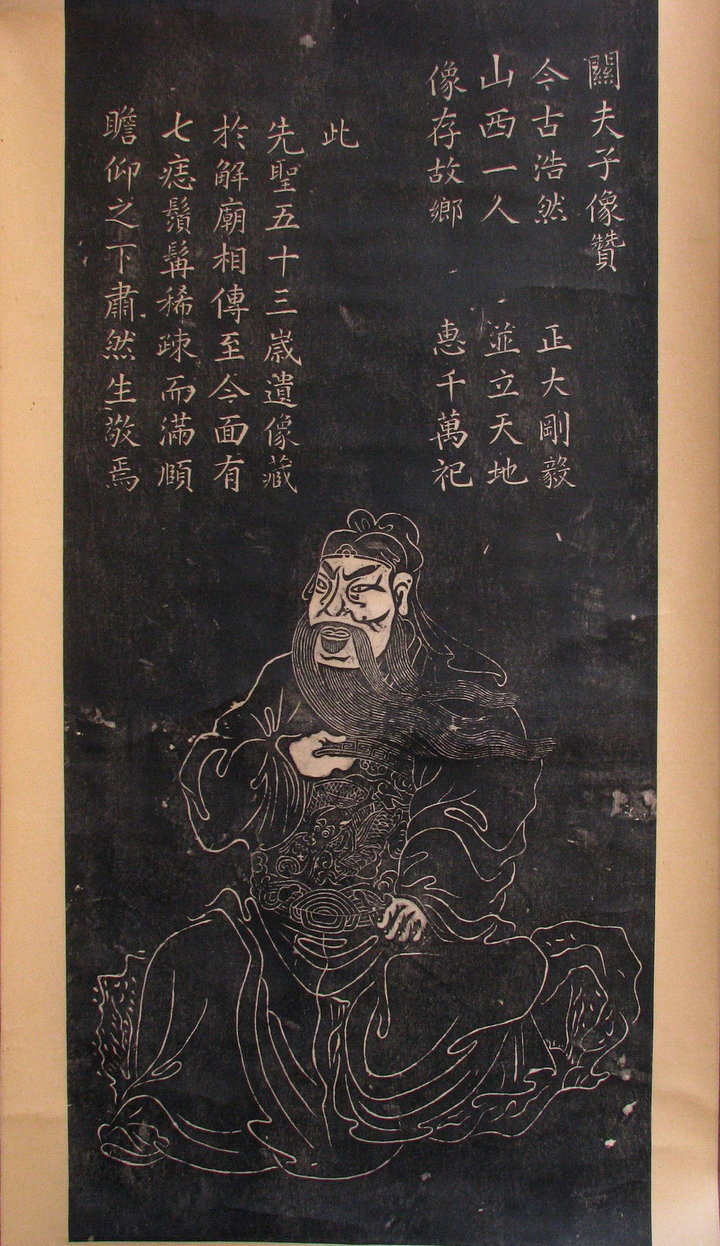 關夫子像贊
今古浩然 正大剛毅
山西一人 並立天地
像存故鄉 惠千萬祀
此
先聖五十三歲遺像藏
於解廟相傳至今面有
七痣鬚髯稀疎而滿頤
瞻仰之下肅然生敬焉